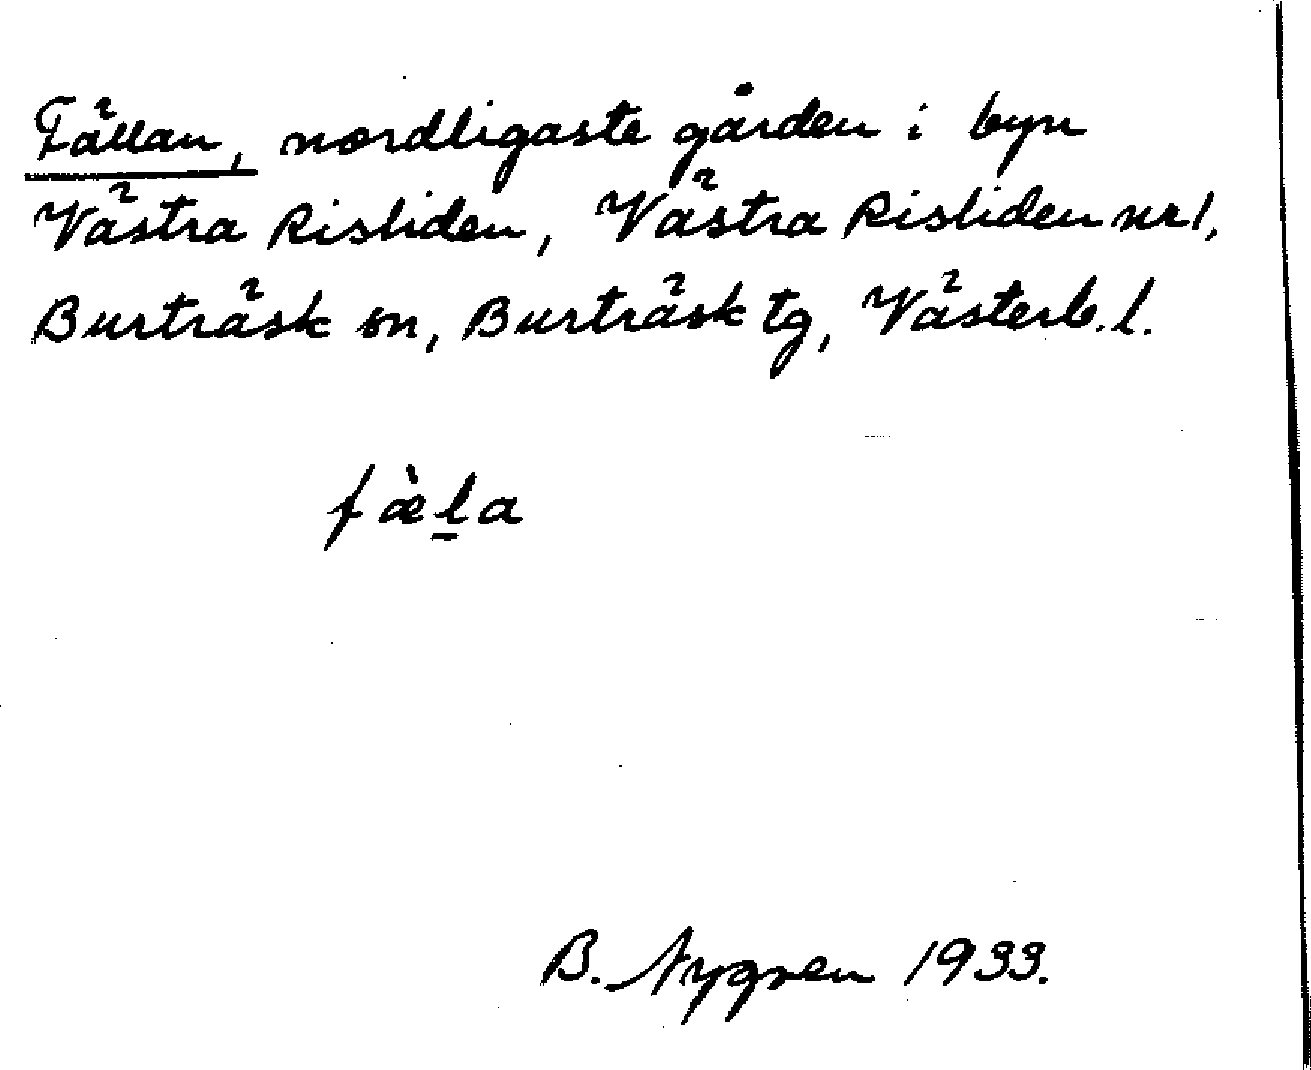 Fällan, nordligaste gården i byn
Västra Risliden, Västra Risliden nr 1,
Burträsk sn, Burträsk tg, Västerb. l.
fæ̀l̠a
B. Nygren 1933.